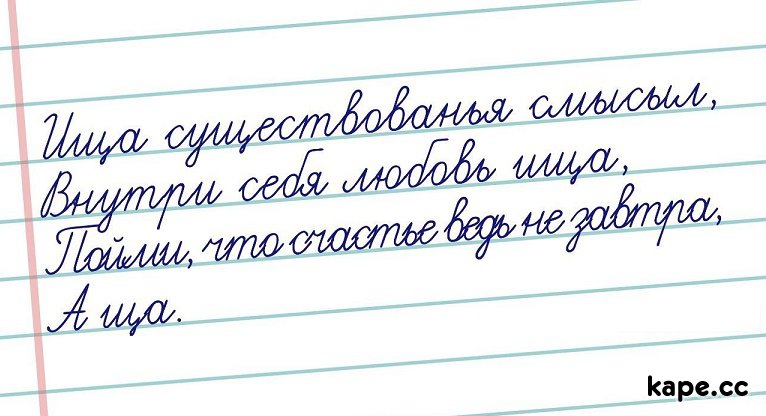 Ища существованья смысыл,
Внутри себя любовь ища,
Пойми, что счастье ведь не завтра,
А ща.
kape.cc